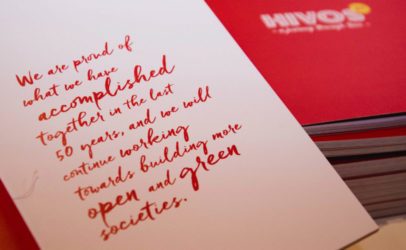 We are proud of
what we have
accomplished
together in the last
50 years, and we will
continue working
towards building more
open and green
societies.
HIVOS